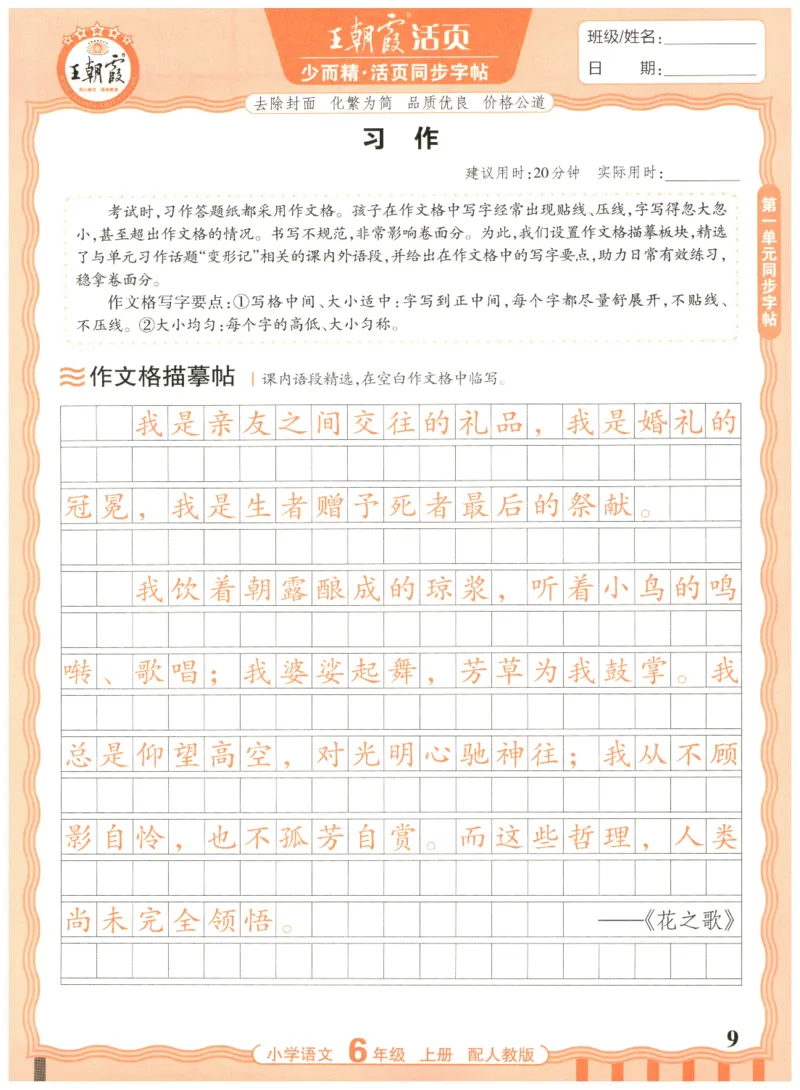 王朝霞活页
少而精·活页同步字帖
王朝霞
班级/姓名：
日 期：
去除封面 化繁为简 品质优良 价格公道
习 作
建议用时：20分钟 实际用时：
考试时，习作答题纸都采用作文格。孩子在作文格中写字经常出现贴线、压线，字写得忽大忽
小，甚至超出作文格的情况。书写不规范，非常影响卷面分。为此，我们设置作文格描摹板块，精选
了与单元习作话题“变形记”相关的课内外语段，并给出在作文格中的写字要点，助力日常有效练习，
稳拿卷面分。
作文格写字要点：①写格中间、大小适中：字写到正中间，每个字都尽量舒展开，不贴线、
不压线。②大小均匀：每个字的高低、大小匀称。
第一单元同步字帖
作文格描摹帖 课内语段精选，在空白作文格中临写。
我是亲友之间交往的礼品，我是婚礼的
冠冕，我是生者赠予死者最后的祭献。
我饮着朝露酿成的琼浆，听着小鸟的鸣
啭、歌唱；我婆娑起舞，芳草为我鼓掌。我
总是仰望高空，对光明心驰神往；我从不顾
影自怜，也不孤芳自赏。而这些哲理，人类
尚未完全领悟。 ——《花之歌》
小学语文 6年级 上册 配人教版
9